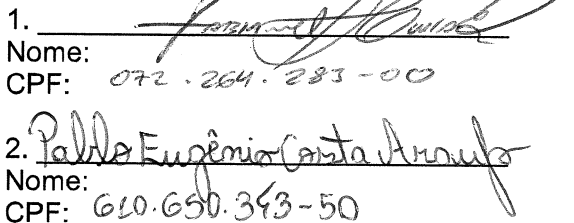 1.
Nome:
CPF: 072.264.283-00
2. Pablo Eugênio Costa Araujo
Nome:
CPF: 610.650.343-50